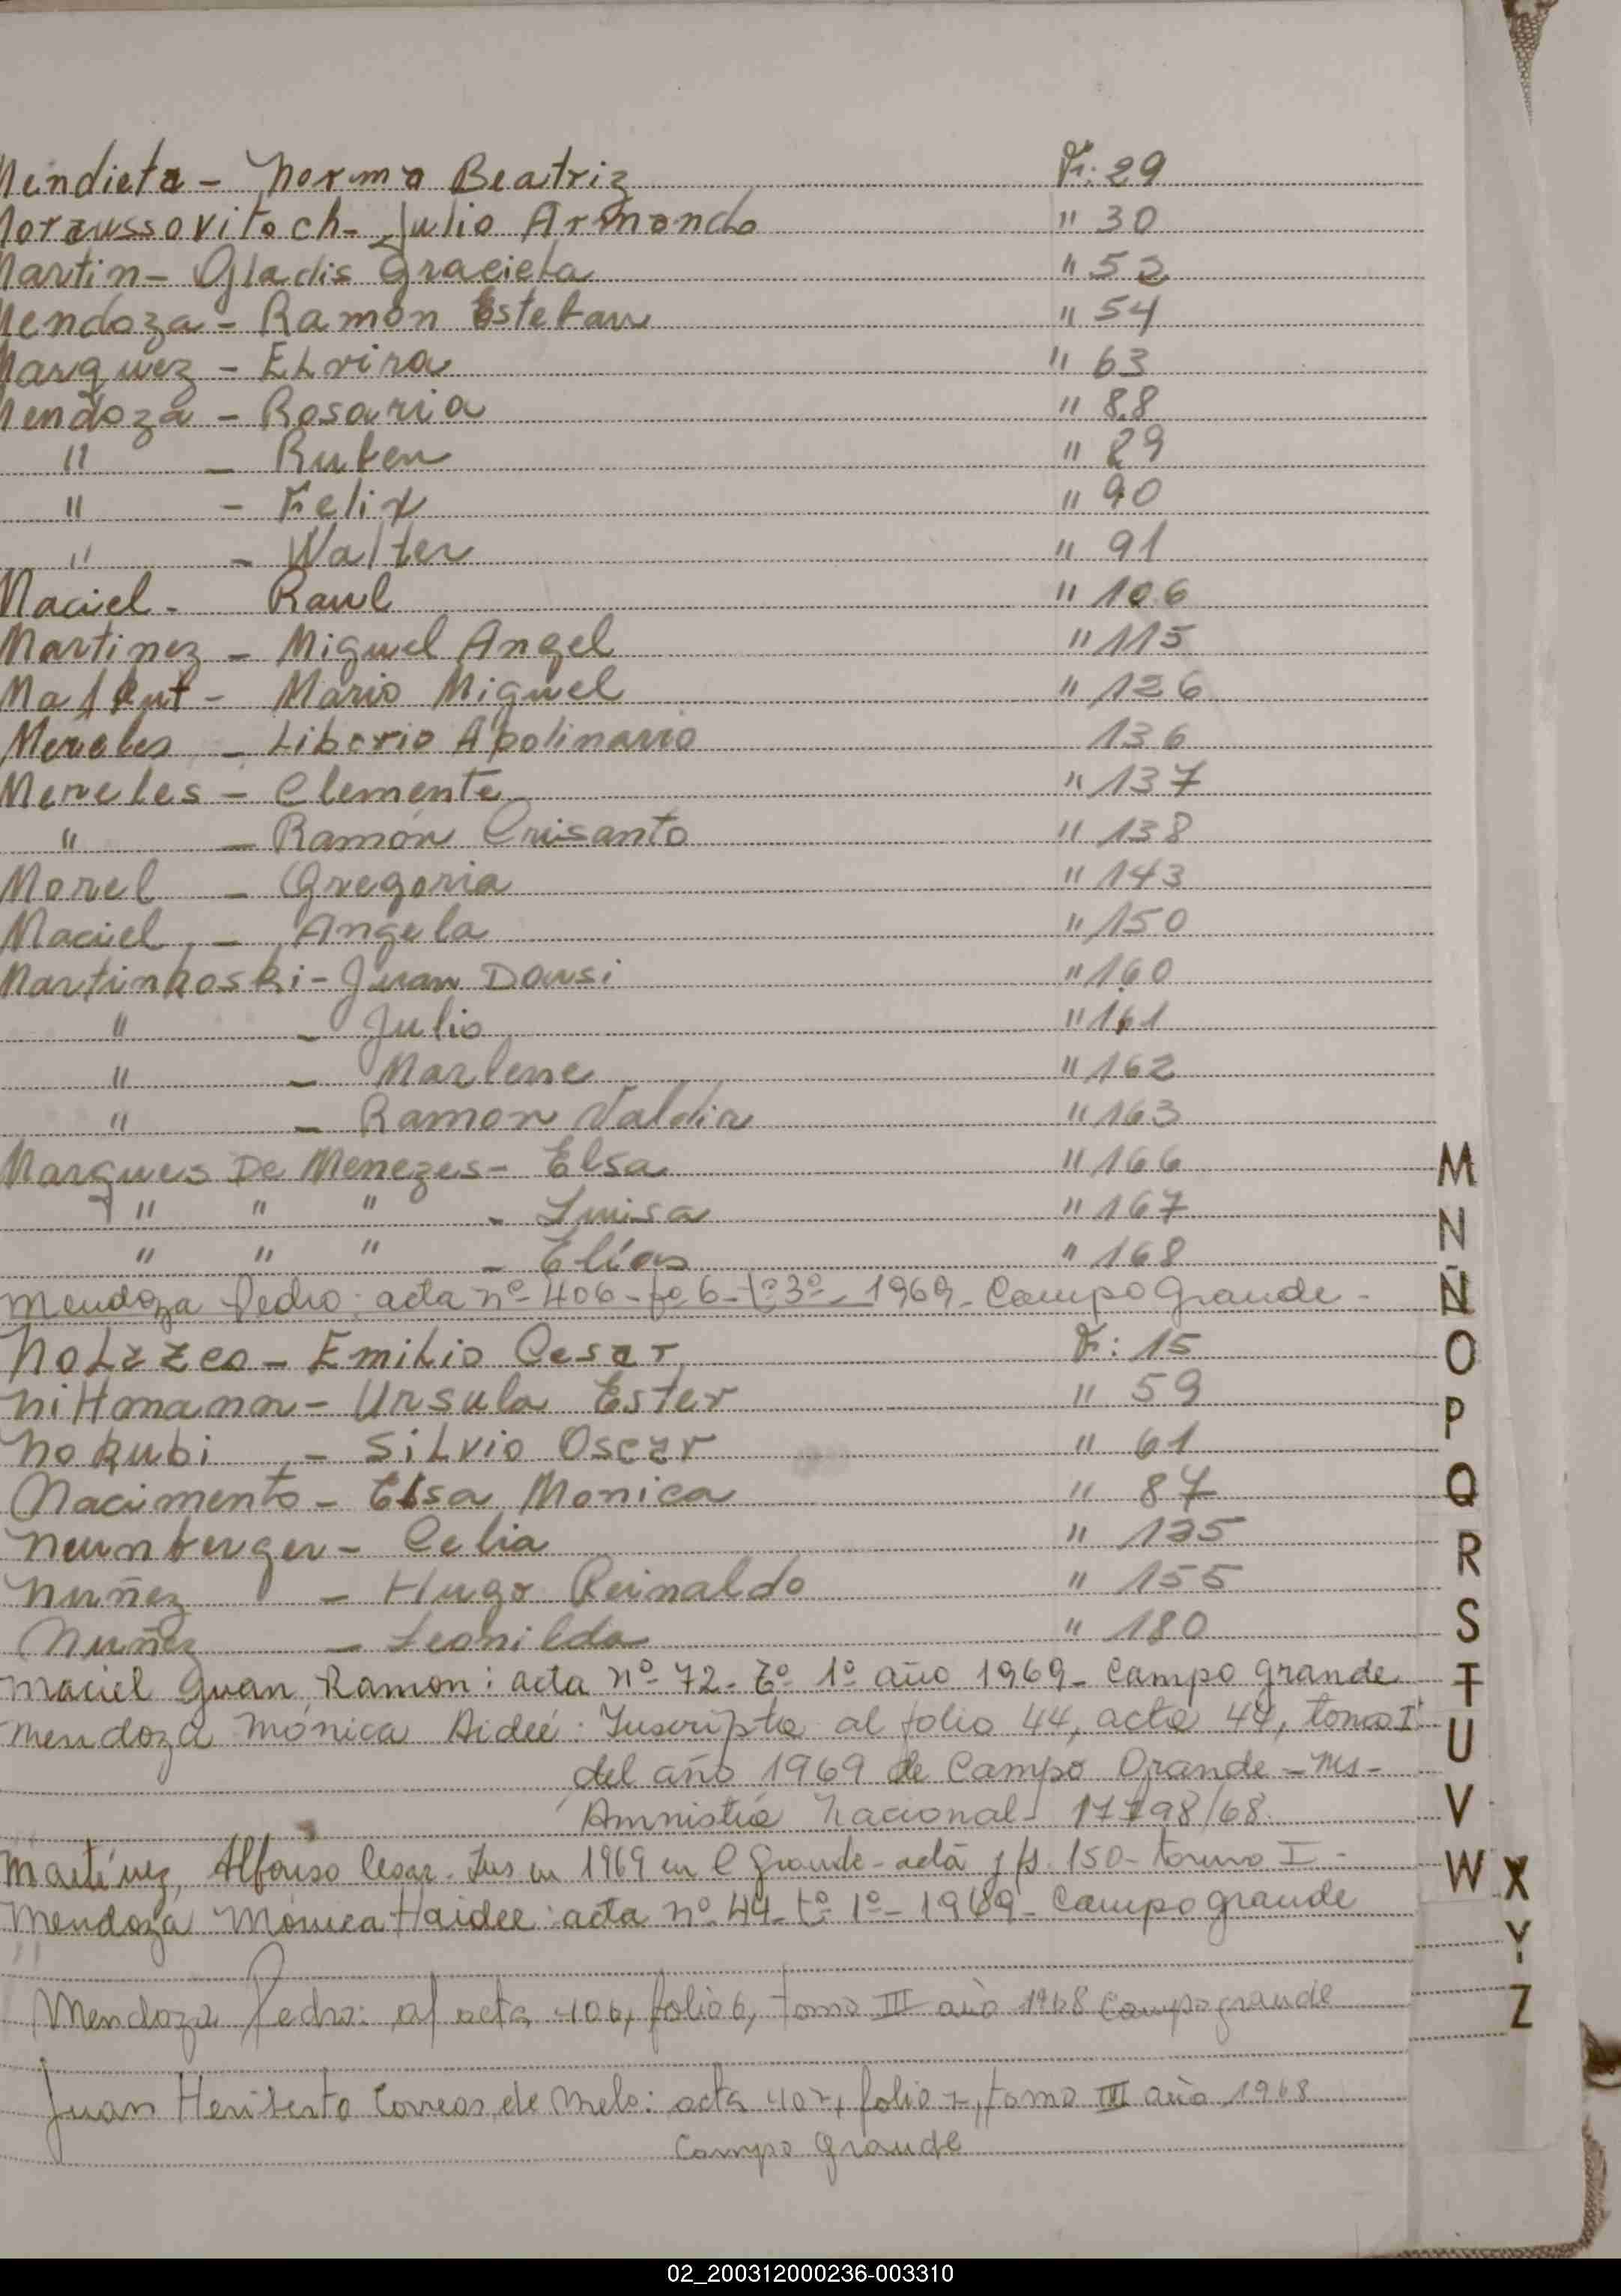 Mendieta - Norma Beatriz F: 29
Moraussovitoch - Julio Armando " 30
Martin - Gladis Graciela " 52
Mendoza - Ramón Esteban " 54
Marquez - Elvira " 63
Mendoza - Rosaria " 88
" - Ruben " 89
" - Felix " 90
" - Walter " 91
Maciel - Raul " 106
Martinez - Miguel Angel " 115
- Mario Miguel " 126
Mereles - Liborio Apolinario 136
Mereles - Clemente " 137
" - Ramón Crisanto " 138
Morel - Gregoria " 143
Maciel - Angela " 150
Martinhoski - Juan Darsi " 160
" - Julio " 161
" - Marlene " 162
" - Ramon Valdir " 163
Marques De Menezes - Elsa " 166
" " " - Luisa " 167
" " " - Elías " 168
Mendoza Pedro: acta nº 406 - fº 6 - tº 3º - 1969 - Campo Grande -
Emilio Cesar F: 15
Nittmann - Ursula Ester " 59
Nokubi - Silvio Oscar " 61
Nacimento - Elsa Monica " 87
Neurnberger - Celia " 125
Nuñez - Hugo Reinaldo " 155
Nuñez - Leonilda " 180
Maciel Juan Ramon: acta nº 72 - Tº 1º año 1969 - Campo Grande
Mendoza Mónica Aideé: Inscripta al folio 44, acta 44, tomo I
del año 1969 de Campo Grande - Ms -
Amnistía Nacional - 17798/68
Martínez, Alfonso Cesar - Ins en 1969 en C Grande - acta y fs. 150 - tomo I -
Mendoza Mónica Haidee: acta nº 44 - tº 1º - 1969 - Campo grande
Mendoza Pedro: al acta 406, folio 6, tomo III año 1968 Campo grande
Juan Heriberto Correas de Melo: acta 407, folio 7, tomo III año 1968
Campo Grande
M
N
Ñ
O
P
Q
R
S
T
U
V
W
X
Y
Z
02_200312000236-003310